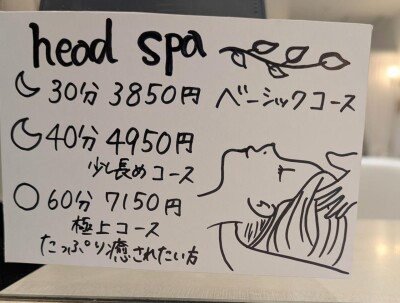 head spa
30分 3850円 ベーシックコース
40分 4950円
少し長めコース
60分 7150円
極上コース
たっぷり癒されたい方